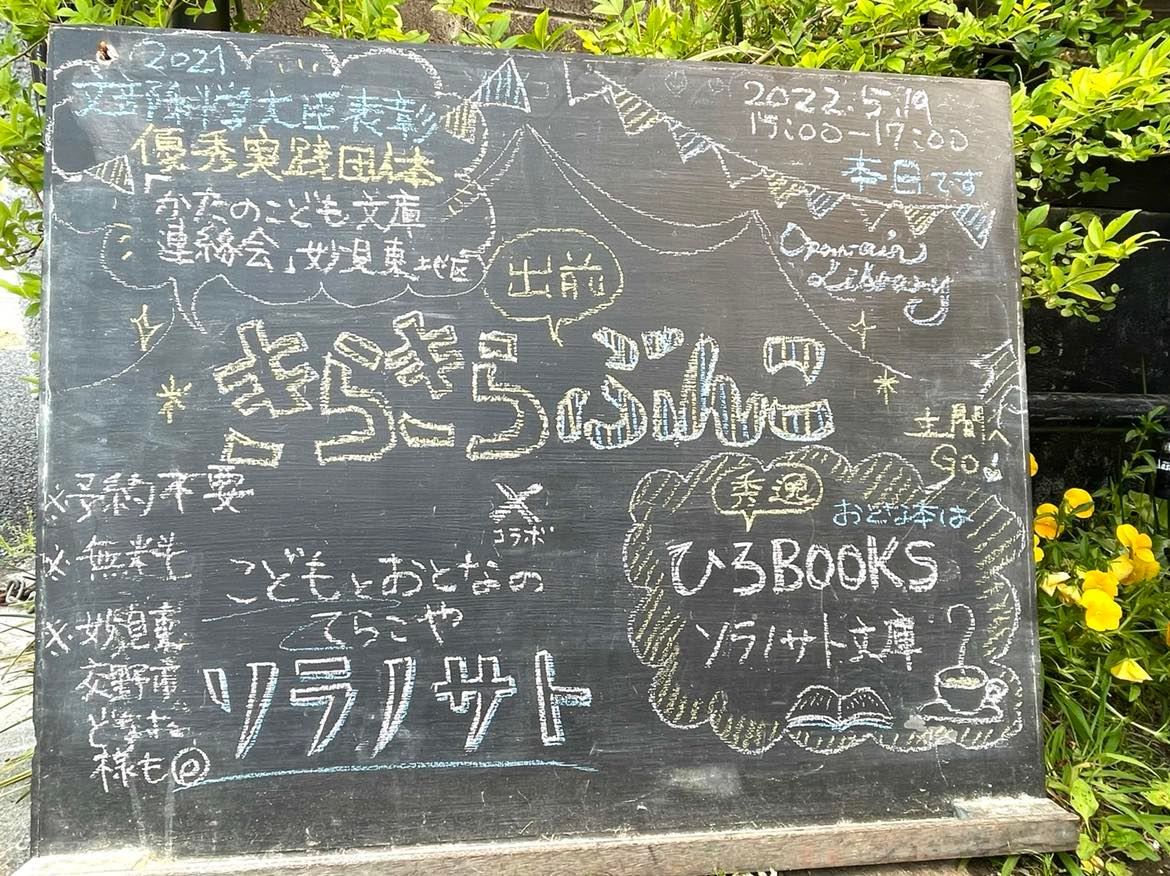 2021
文部科学大臣表彰
優秀実践団体
「かたのこども文庫
連絡会」妙見東地区
2022.5.19
15:00-17:00
本日です
Open-air
Library
出前
きらきらぶんこ
土間へ
GO
※予約不要
※無料
※妙見東
交野市
どなた
様も@
×
コラボ
こどもとおとなの
てらこや
ソラノサト
秀逸
おとな本は
ひろBOOKS
ソラノサト文庫